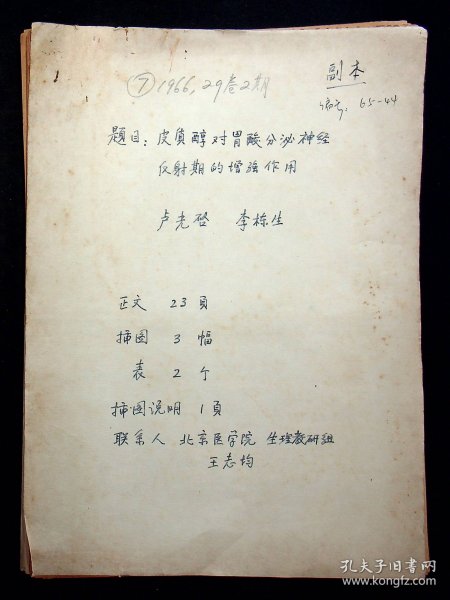 副本
⑦ 1966, 29卷2期
编号: 65-44
题目: 皮质醇对胃酸分泌神经
反射期的增强作用
卢光启 李栋生
正文 23頁
插图 3 幅
表 2 个
插图说明 1頁
联系人 北京医学院 生理教研组
王志均
孔夫子旧书网
www.kongfz.com